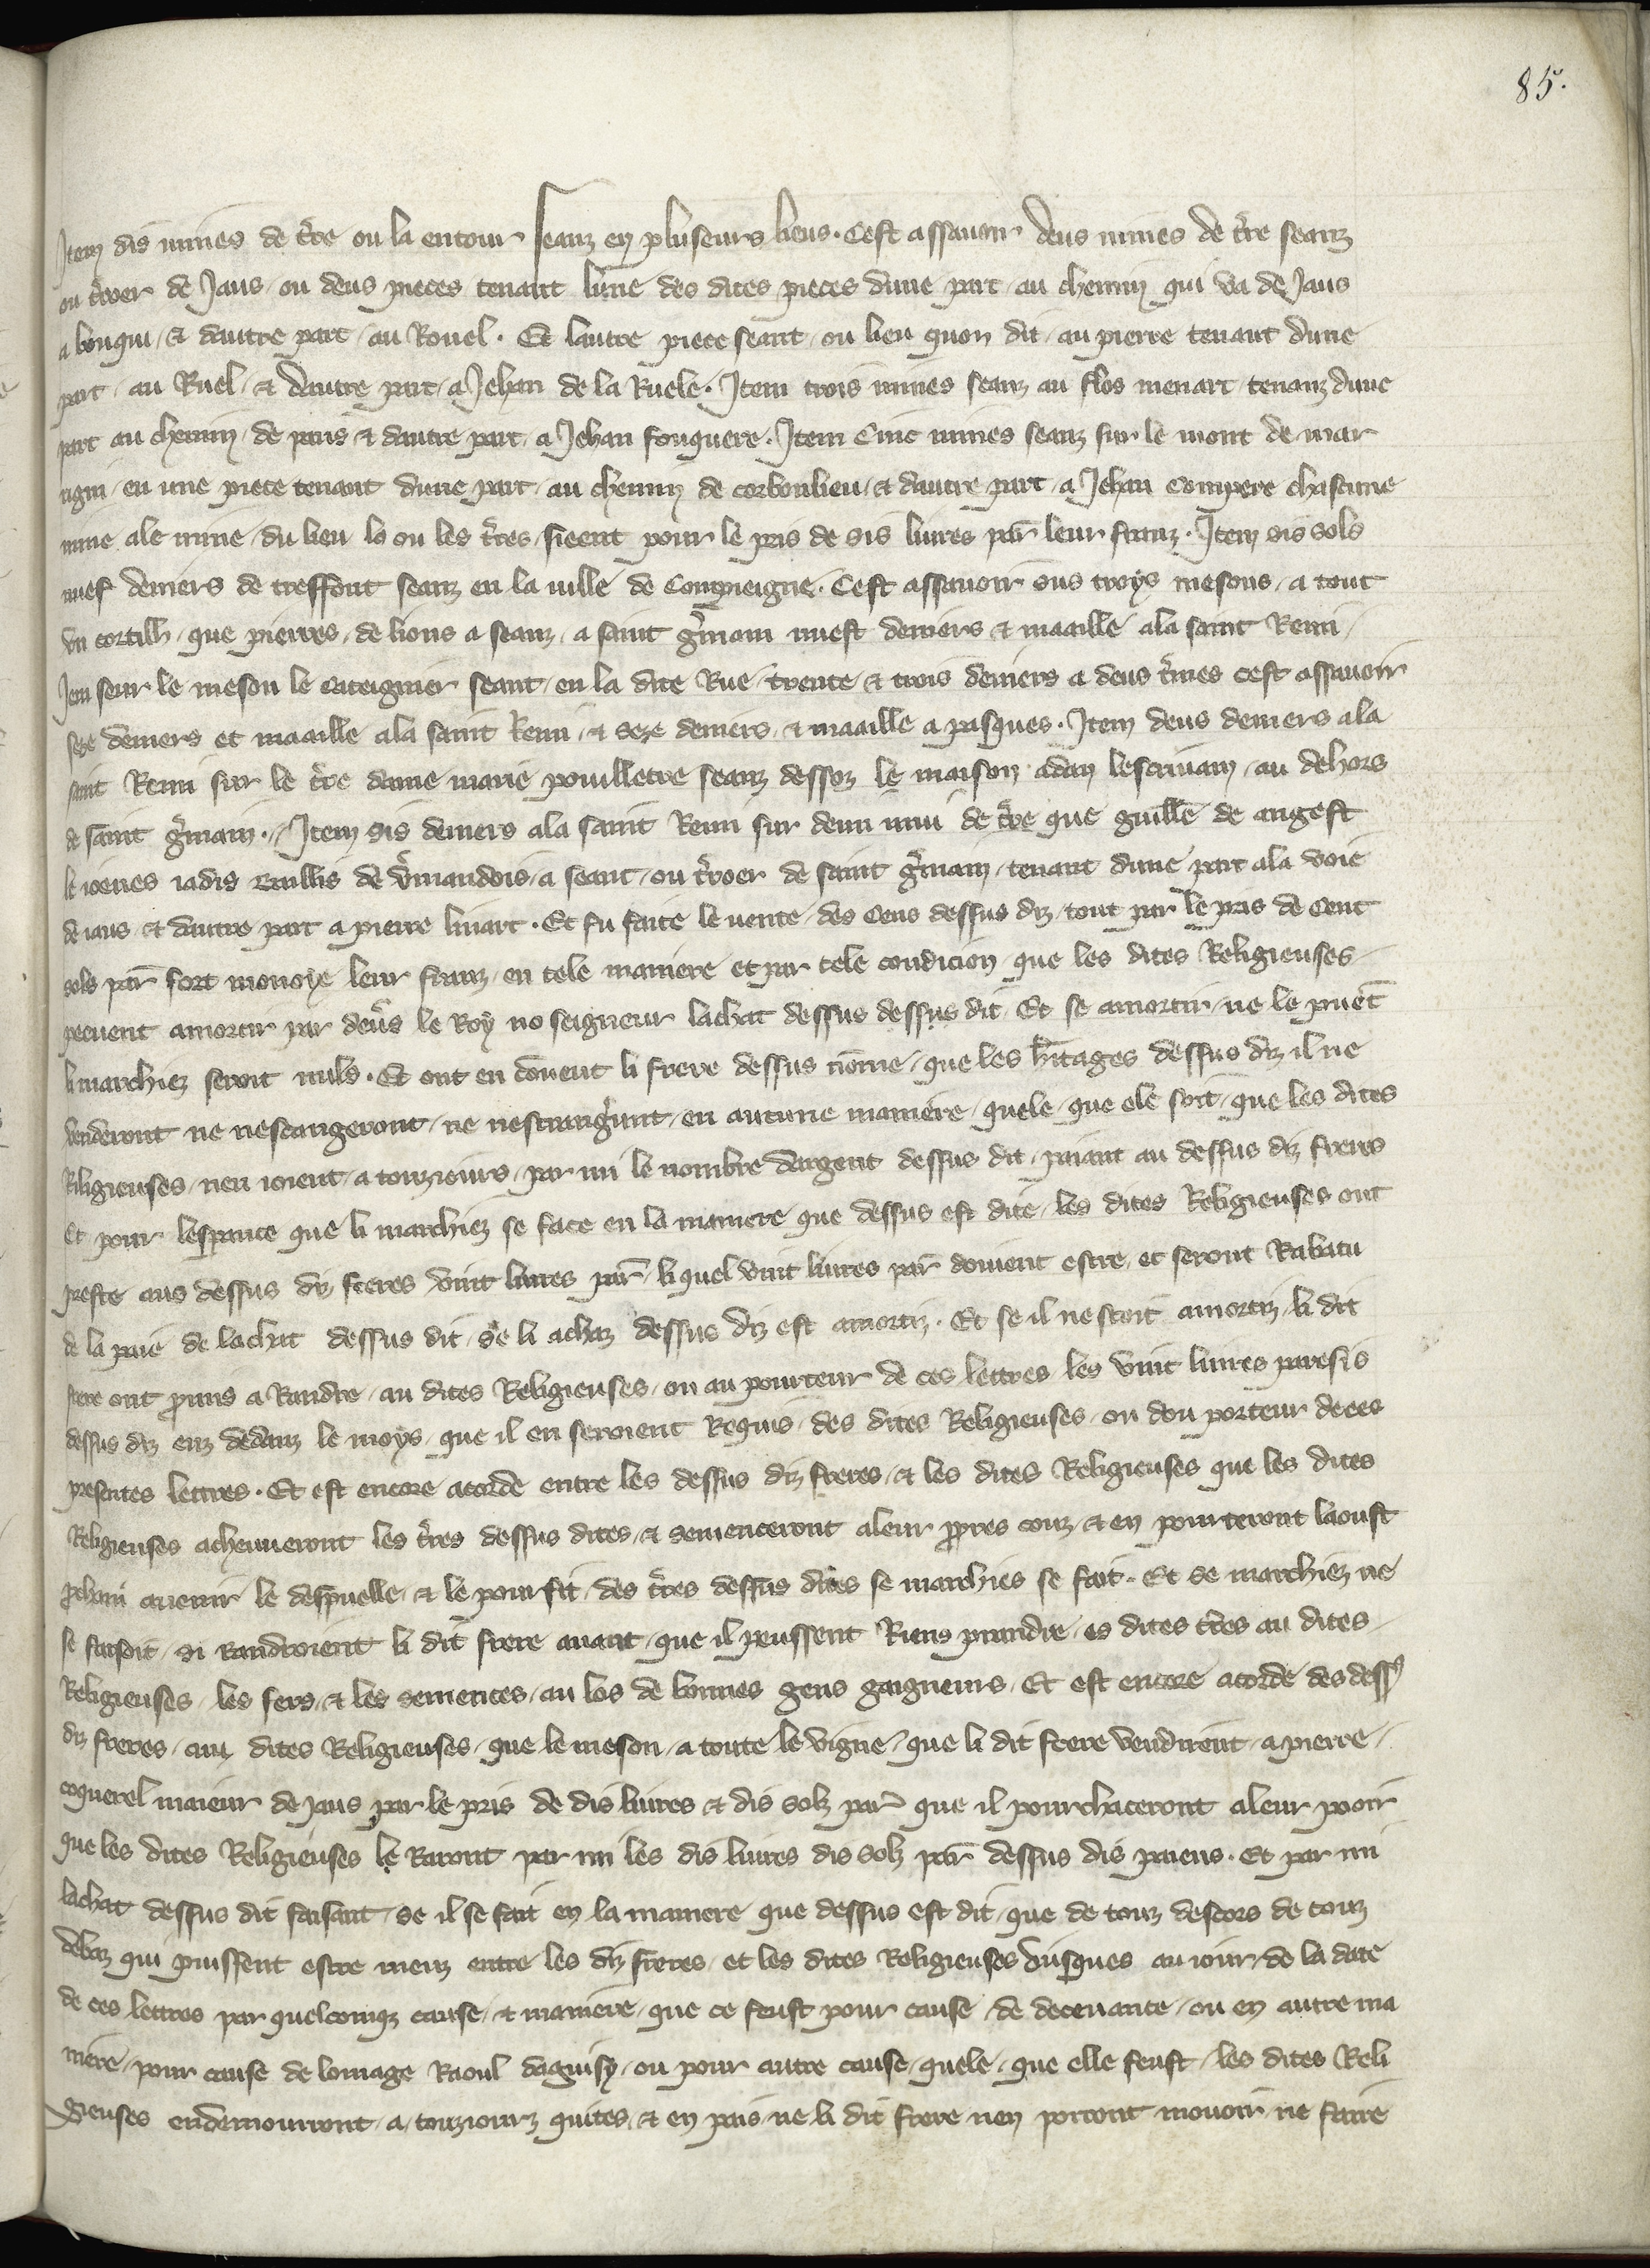 85.
Item dis mines de t̃re ou la entour seanz en pluseurs lieus. Cest assauoir deus mines de t̃re seanz
ou t̃roer de Jaus ou deus pieces tenant lune des dites pieces dune part au chemin qui va de Jaus
a bouqui & dautre part au Rouel. Et lautre piece seant ou lieu quon dit au pierre tenant dune
part au Ruel & dautre part a Jehan de la Ruele. Item trois mines seanz au flos menart tenanz dune
part au chemin de paris & dautre part a Jehan fouquere. Item Cinc mines seanz sur le mont de mar
ngni en une piece tenant dune part au chemin de corbeulieu & dautre part a Jehan Compere chascune
mine ale mine du lieu la ou les t̃res sieent pour le pris de sis liures par̃ leur franz. Item sis sols
nuef deniers de treffont seanz en la uille de Compieigne. Cest assauoir sus troys mesons a tout
vn cortilh que pierres de lions a seanz a saint g̃main nuef deniers & maaille ala saint Remi
Jem seur le meson le cateignier seant en la dite Rue trente & trois deniers a deus t̃mes cest assauoir
seze deniers et maaille ala saint Remi & seze deniers & maaille a pasques. Item deus deniers ala
saint Remi sur le t̃re dame marie pouilletre seanz dessoz le maison adan lescriuain au dehors
de saint g̃main. Item sis deniers ala saint Remi sur demi mui de t̃re que guillẽ de angest
le ioenes iadis baillis de ṽmandois a seant ou t̃roer de saint g̃main tenant dune part ala voie
de iaus & dautre part a pierre liuart. Et fu faite le uente des Cens dessus diz tout par le pris de Cent
sols par̃ fort monoye leur franz en tele maniere et par tele condicion que les dites Religieuses
peeuent amortir par deũs le Roy no seigneur lachat dessus dessus dit. Et se amortir ne le pueẽt
li marchiez seroit nuls. Et ont en cõuent li frere dessus nõme que les h̃itages dessus diz il ne
venderont ne nescangeront ne nestrang̃unt en aucune maniere quele que ele soit que les dites
Religieuses neu ioient a touziours par mi le nombre dargent dessus dit paiant au dessus diz freres
Et pour lesperance que li marchiez se face en la maniere que dessus est dite les dites Religieuses ont
preste aus dessus diz freres vint liures par̃ li quel vint liures par̃ doiuent estre et seront Rabatu
de la paie de lachat dessus dit se li achaz dessus diz est amortiz. Et se il nestoit amortiz li dit
frere ont p̃mis a Randre au dites Religieuses ou au pourteur de ces lettres les vint liures paresis
dessus diz enz dedanz le moys que il en seroient Requis des dites Religieuses ou dou porteur de ces
presentes lettres. Et est encore acorde entre les dessus diz freres & les dites Religieuses que les dites
Religieuses acheuueront les t̃res dessus dites & semenceront aleur p̃pres couz & en pourteront laoust
p̃chain auenir le despuelle & le pourfit des t̃res dessus dites se marchies se fait. Et se marchiez ne
se faisoit si Randroient li dit frere auant que il peussent Riens prandre es dites t̃res au dites
Religieuses les fers & les semences au los de bonnes gens gaigneurs. Et est encore acorde des dess9
diz freres aui dites Religieuses que le meson a toute le vigne que li dit frere vendirent a pierre
coquerel maieur de jaus par le pris de dis liures & dis solz par̃ que il pourchaceront aleur pooir
que les dites Religieuses le Raront par mi les dis liures dis solz par̃ dessus dis paiens. Et par mi
lachat dessus dit faisant se il se fait en la maniere que dessus est dit que de touz descors de touz
debaz qui puissent estre meuz entre les diz freres et les dites Religieuses dusques au iour de la date
de ces lettres par quelconq cause & maniere que ce feust pour cause de deceuance ou en autre ma
niere pour cause de lomage Raoul daguisy ou pour autre cause quele que elle feust les dites Reli
gieuses endemourront a touziourz quites & en pais ne li dit frere nen porront mouoir ne faire